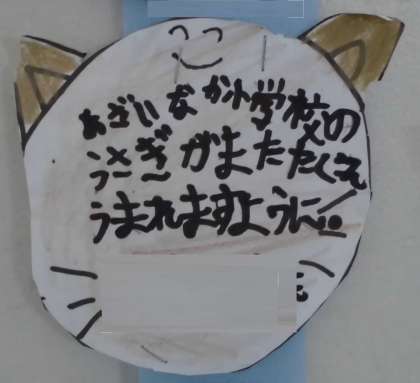 あざいなか小学校の
うさぎがまたたくさん
うまれますように!!